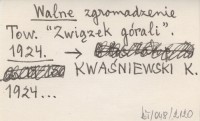 Walne zgromadzenie
Tow. "Związek górali".
1924. →
KWAŚNIEWSKI K.
1924...